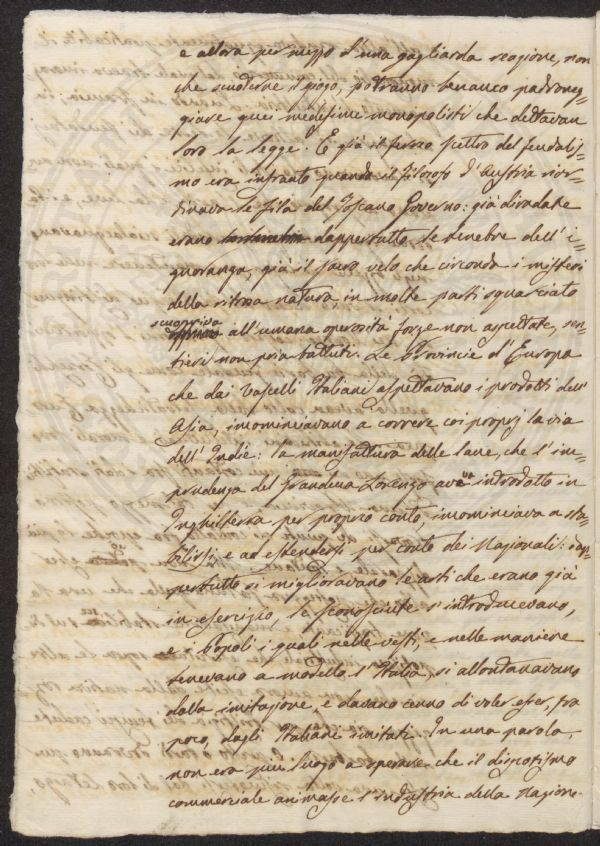 e allora per mezzo d'una gagliarda reazione, non
che scuoterne il giogo, potranno benanco padroneg=
giare quei medesimi monopolisti che dettavan
loro la legge. E già il ferreo scettro del feudalis=
mo era infranto quando il filosofo d'Austria rior=
dinava le fila del Toscano Governo: già diradate
erano dappertutto le tenebre dell'i=
gnoranza, già il sacro velo che circonda i misteri
della ritrosa natura, in molte parti squarciato
scuopriva
all'umana operosità forze non aspettate, sen=
tieri non pria battuti. Le Provincie d'Europa
che dai Vascelli Italiani aspettavano i prodotti dell'
Asia, incominciavano a correre coi proprj la via
dell'Indie: la manifattura delle lane, che l'im=
prudenza del Granduca Lorenzo aveva introdotto in
Inghilterra per proprio conto, incominciava a sta=
bilirsi, e ad estendersi per conto dei Nazionali: dap=
pertutto si miglioravano le arti che erano già
in esercizio, le sconosciute s'introducevano,
e i Popoli i quali nelle vesti, e nelle maniere
tenevano a modello l'Italia, si allontanavano
dalla imitazione, e davano cenno di voler esser, fra
poco, dagli Italiani imitati. In una parola,
non era più luogo a sperare che il dispotismo
commerciale animasse l'industria della Nazione.